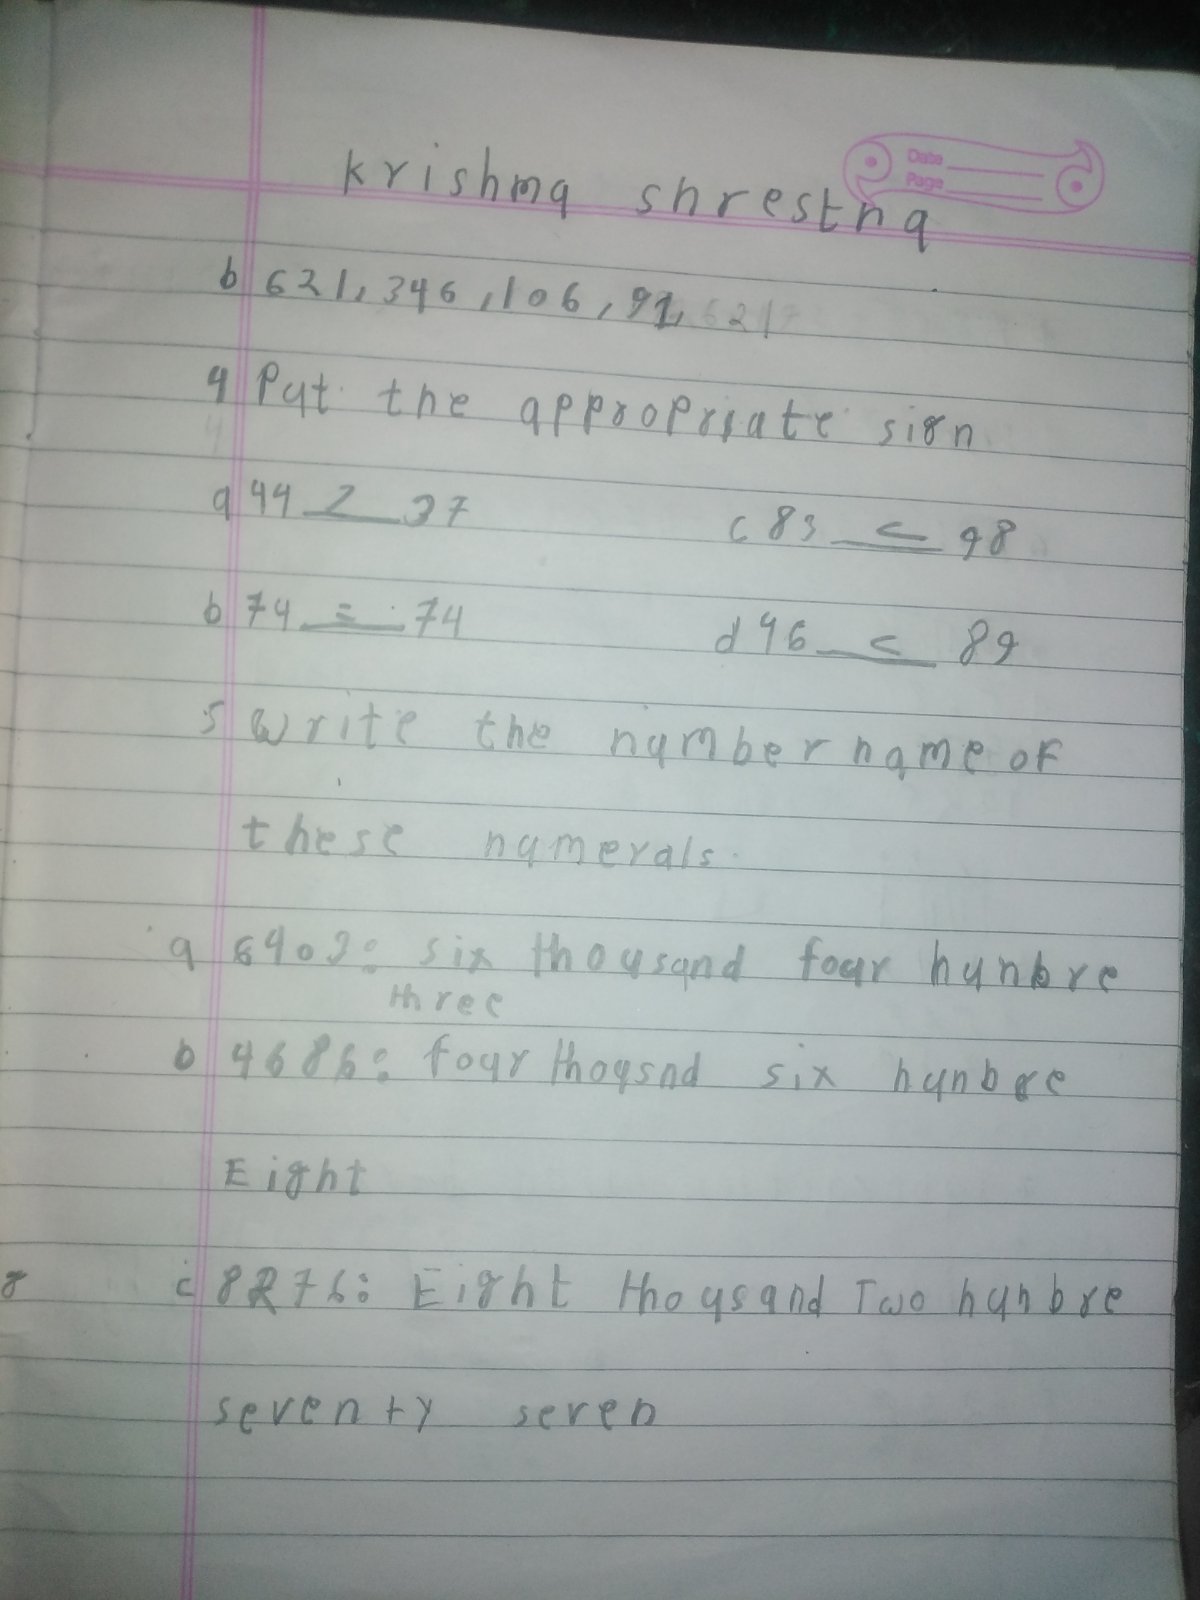 Krishma Shrestha
Date
Page
b 621, 346, 106, 91,
4 Put the appropriate sign
a 44 > 37 c 83 < 98
b 74 = 74 d 46 < 89
5 Write the number name of
these numerals.
a 6403: six thousand four hunbre
three
b 4686: four thousnd six hunbre
Eight
c 8276: Eight thousand Two hunbre
seventy seven